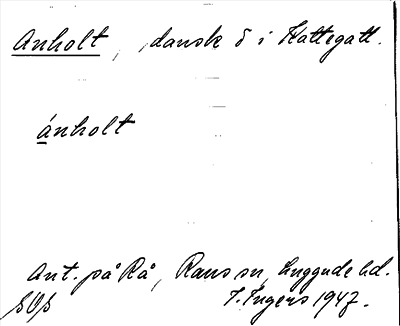 Anholt, dansk ö i Kattegatt.
ánholt
Ant. på Rå, Raus sn, Luggude hd.
SOS I. Ingers 1947.